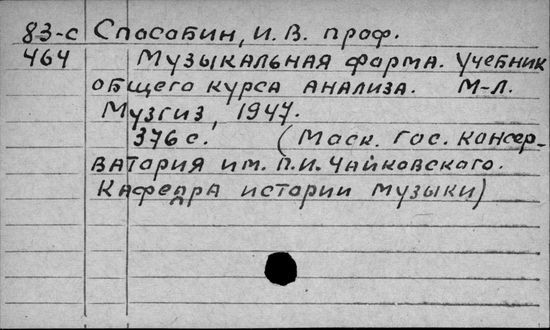 83-с Способин, И. В. проф.
464 Музыкальная форма. Учебник
общего курса анализа. М-Л.
Музгиз, 1947.
376 с. (Моск. гос. консер-
ватория им. П.И. Чайковского.
Кафедра истории музыки)